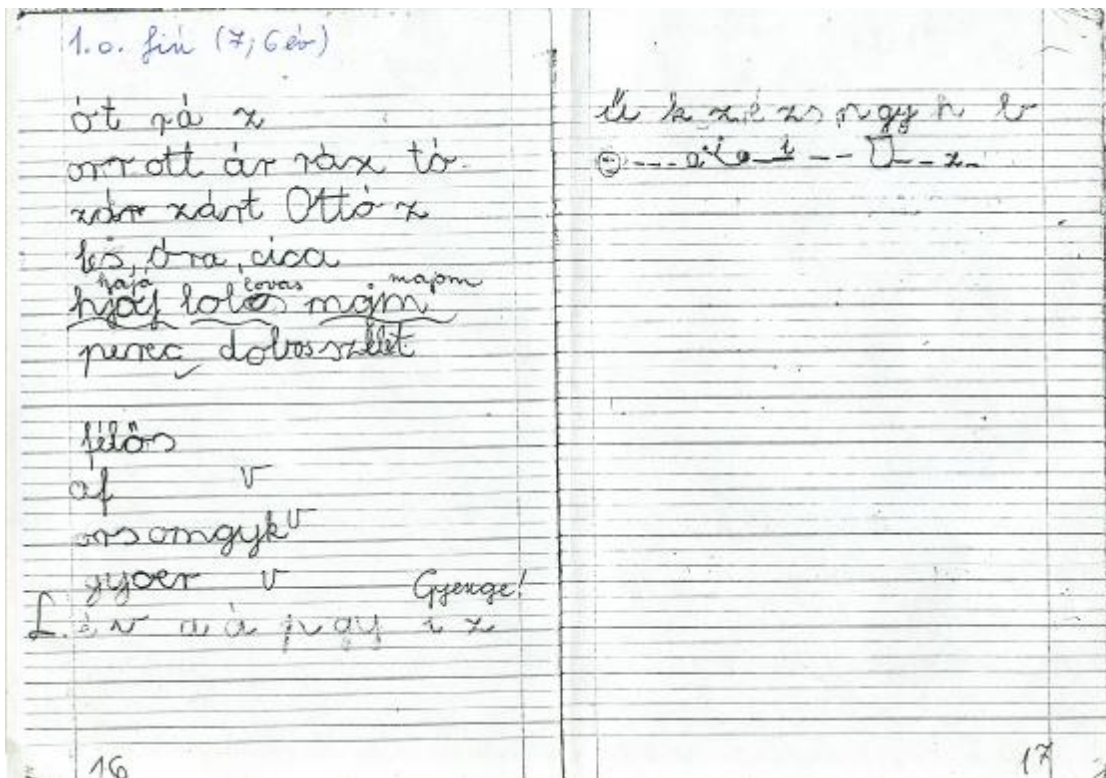 1. o. fiú (7; 6 év)
ót rá z
orr ott ár ráz tó
zár zárt Ottó z
és, óra, cica
hajá lovas majom
hjáj lolos mgjm
perec dobosszelet
félős
af v
orsomgyk v
gyoer v Gyenge!
L. é v a á p gy i z
16
ű k z é zs p gy h b
17